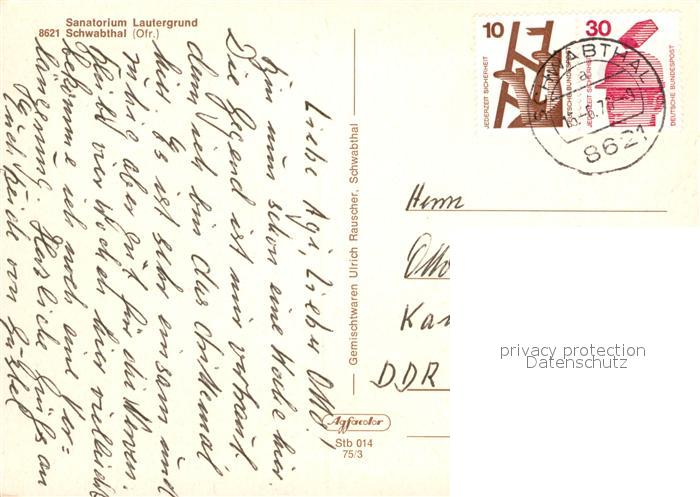 Sanatorium Lautergrund
8621 Schwabthal (Ofr.)
Liebe Agi, lieber Otto!
Bin nun schon eine Woche hier.
Die Gegend ist mir vertraut
denn ich bin das dritte mal
hier. Es ist sehr einsam und
aber gut für die Nerven.
bleibe vier Wochen hier vielleicht
bekomme ich noch eine Ver-
längerung. Herzliche Grüße an
von
Gemischtwaren Ulrich Rauscher, Schwabthal
Agfacolor
Stb 014
75/3
10
JEDERZEIT SICHERHEIT
DEUTSCHE BUNDESPOST
30
JEDERZEIT SICHERHEIT
DEUTSCHE BUNDESPOST
SCHWABTHAL
a
8621
Herrn
Otto
DDR
privacy protection
Datenschutz